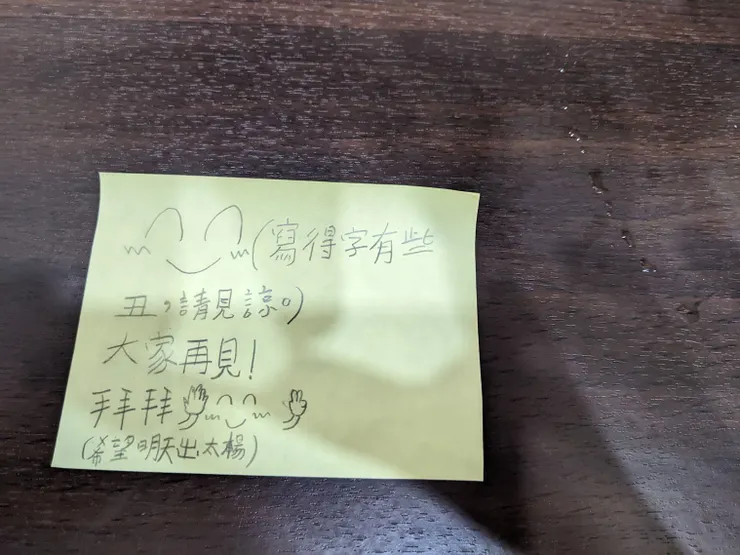 (寫得字有些
丑,請見諒。)
大家再見!
拜拜
(希望明天出太楊)